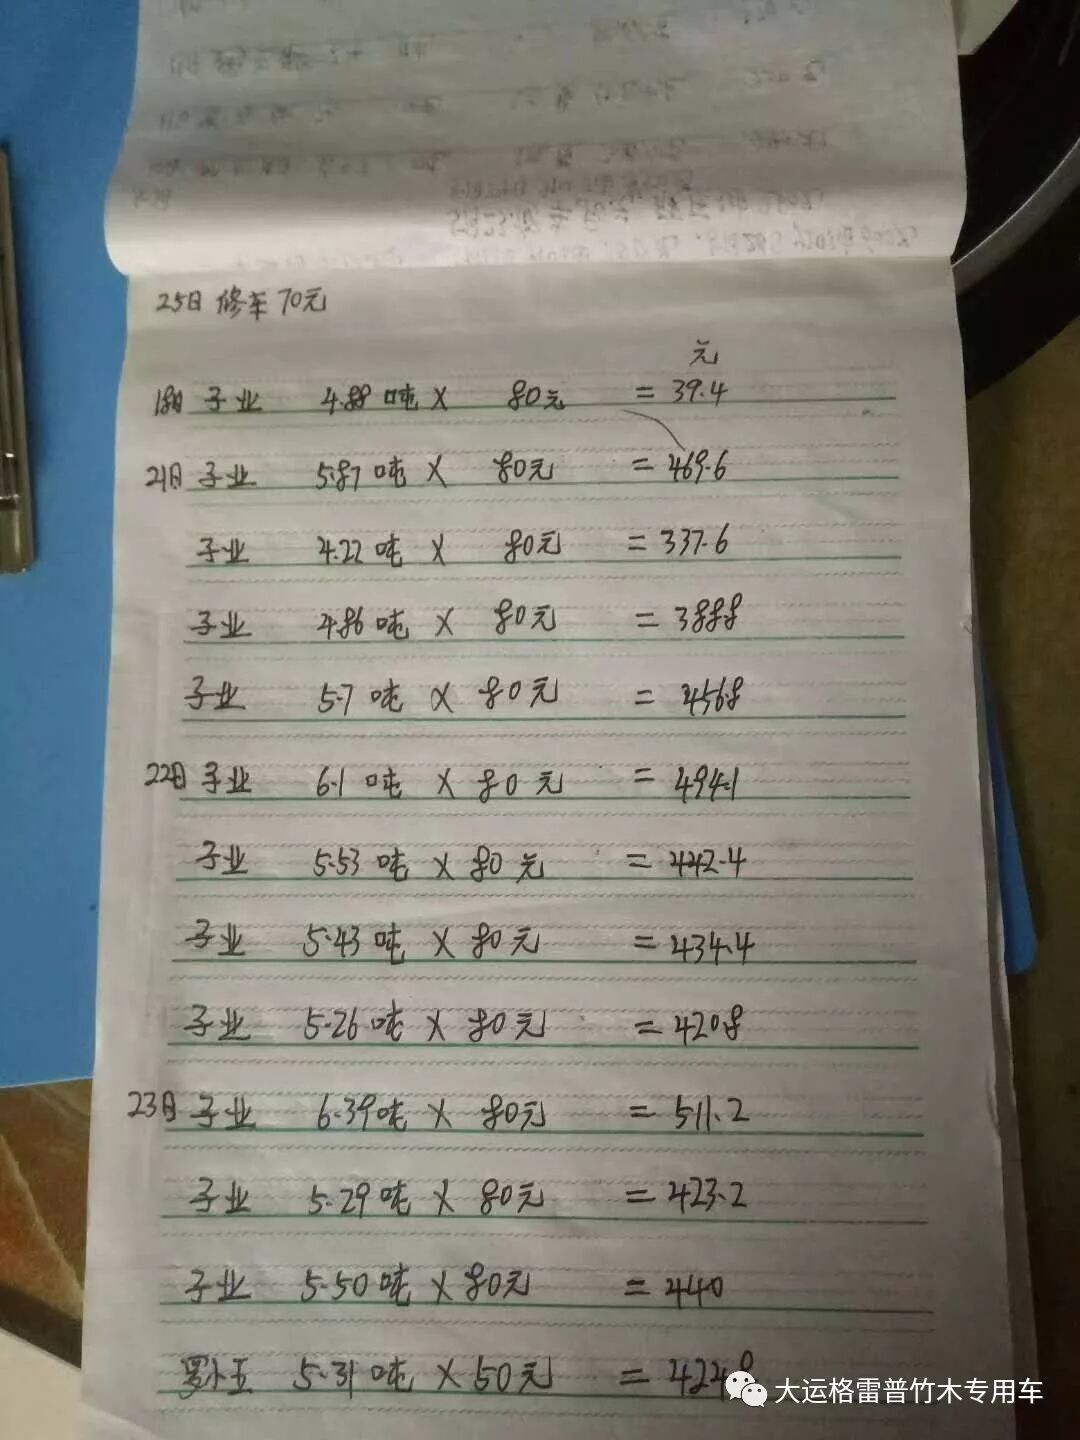 25日 修车 70元
元
18日 子业 4.88吨 X 80元 = 39.4
21日 子业 5.87吨 X 80元 = 469.6
子业 4.22吨 X 80元 = 337.6
子业 4.86吨 X 80元 = 3888
子业 5.7吨 X 80元 = 4568
22日 子业 6.1吨 X 80元 = 494.1
子业 5.53吨 X 80元 = 442.4
子业 5.43吨 X 80元 = 434.4
子业 5.26吨 X 80元 = 4208
23日 子业 6.39吨 X 80元 = 511.2
子业 5.29吨 X 80元 = 423.2
子业 5.50吨 X 80元 = 440
5.31吨 X 50元 = 4248
大运格雷普竹木专用车